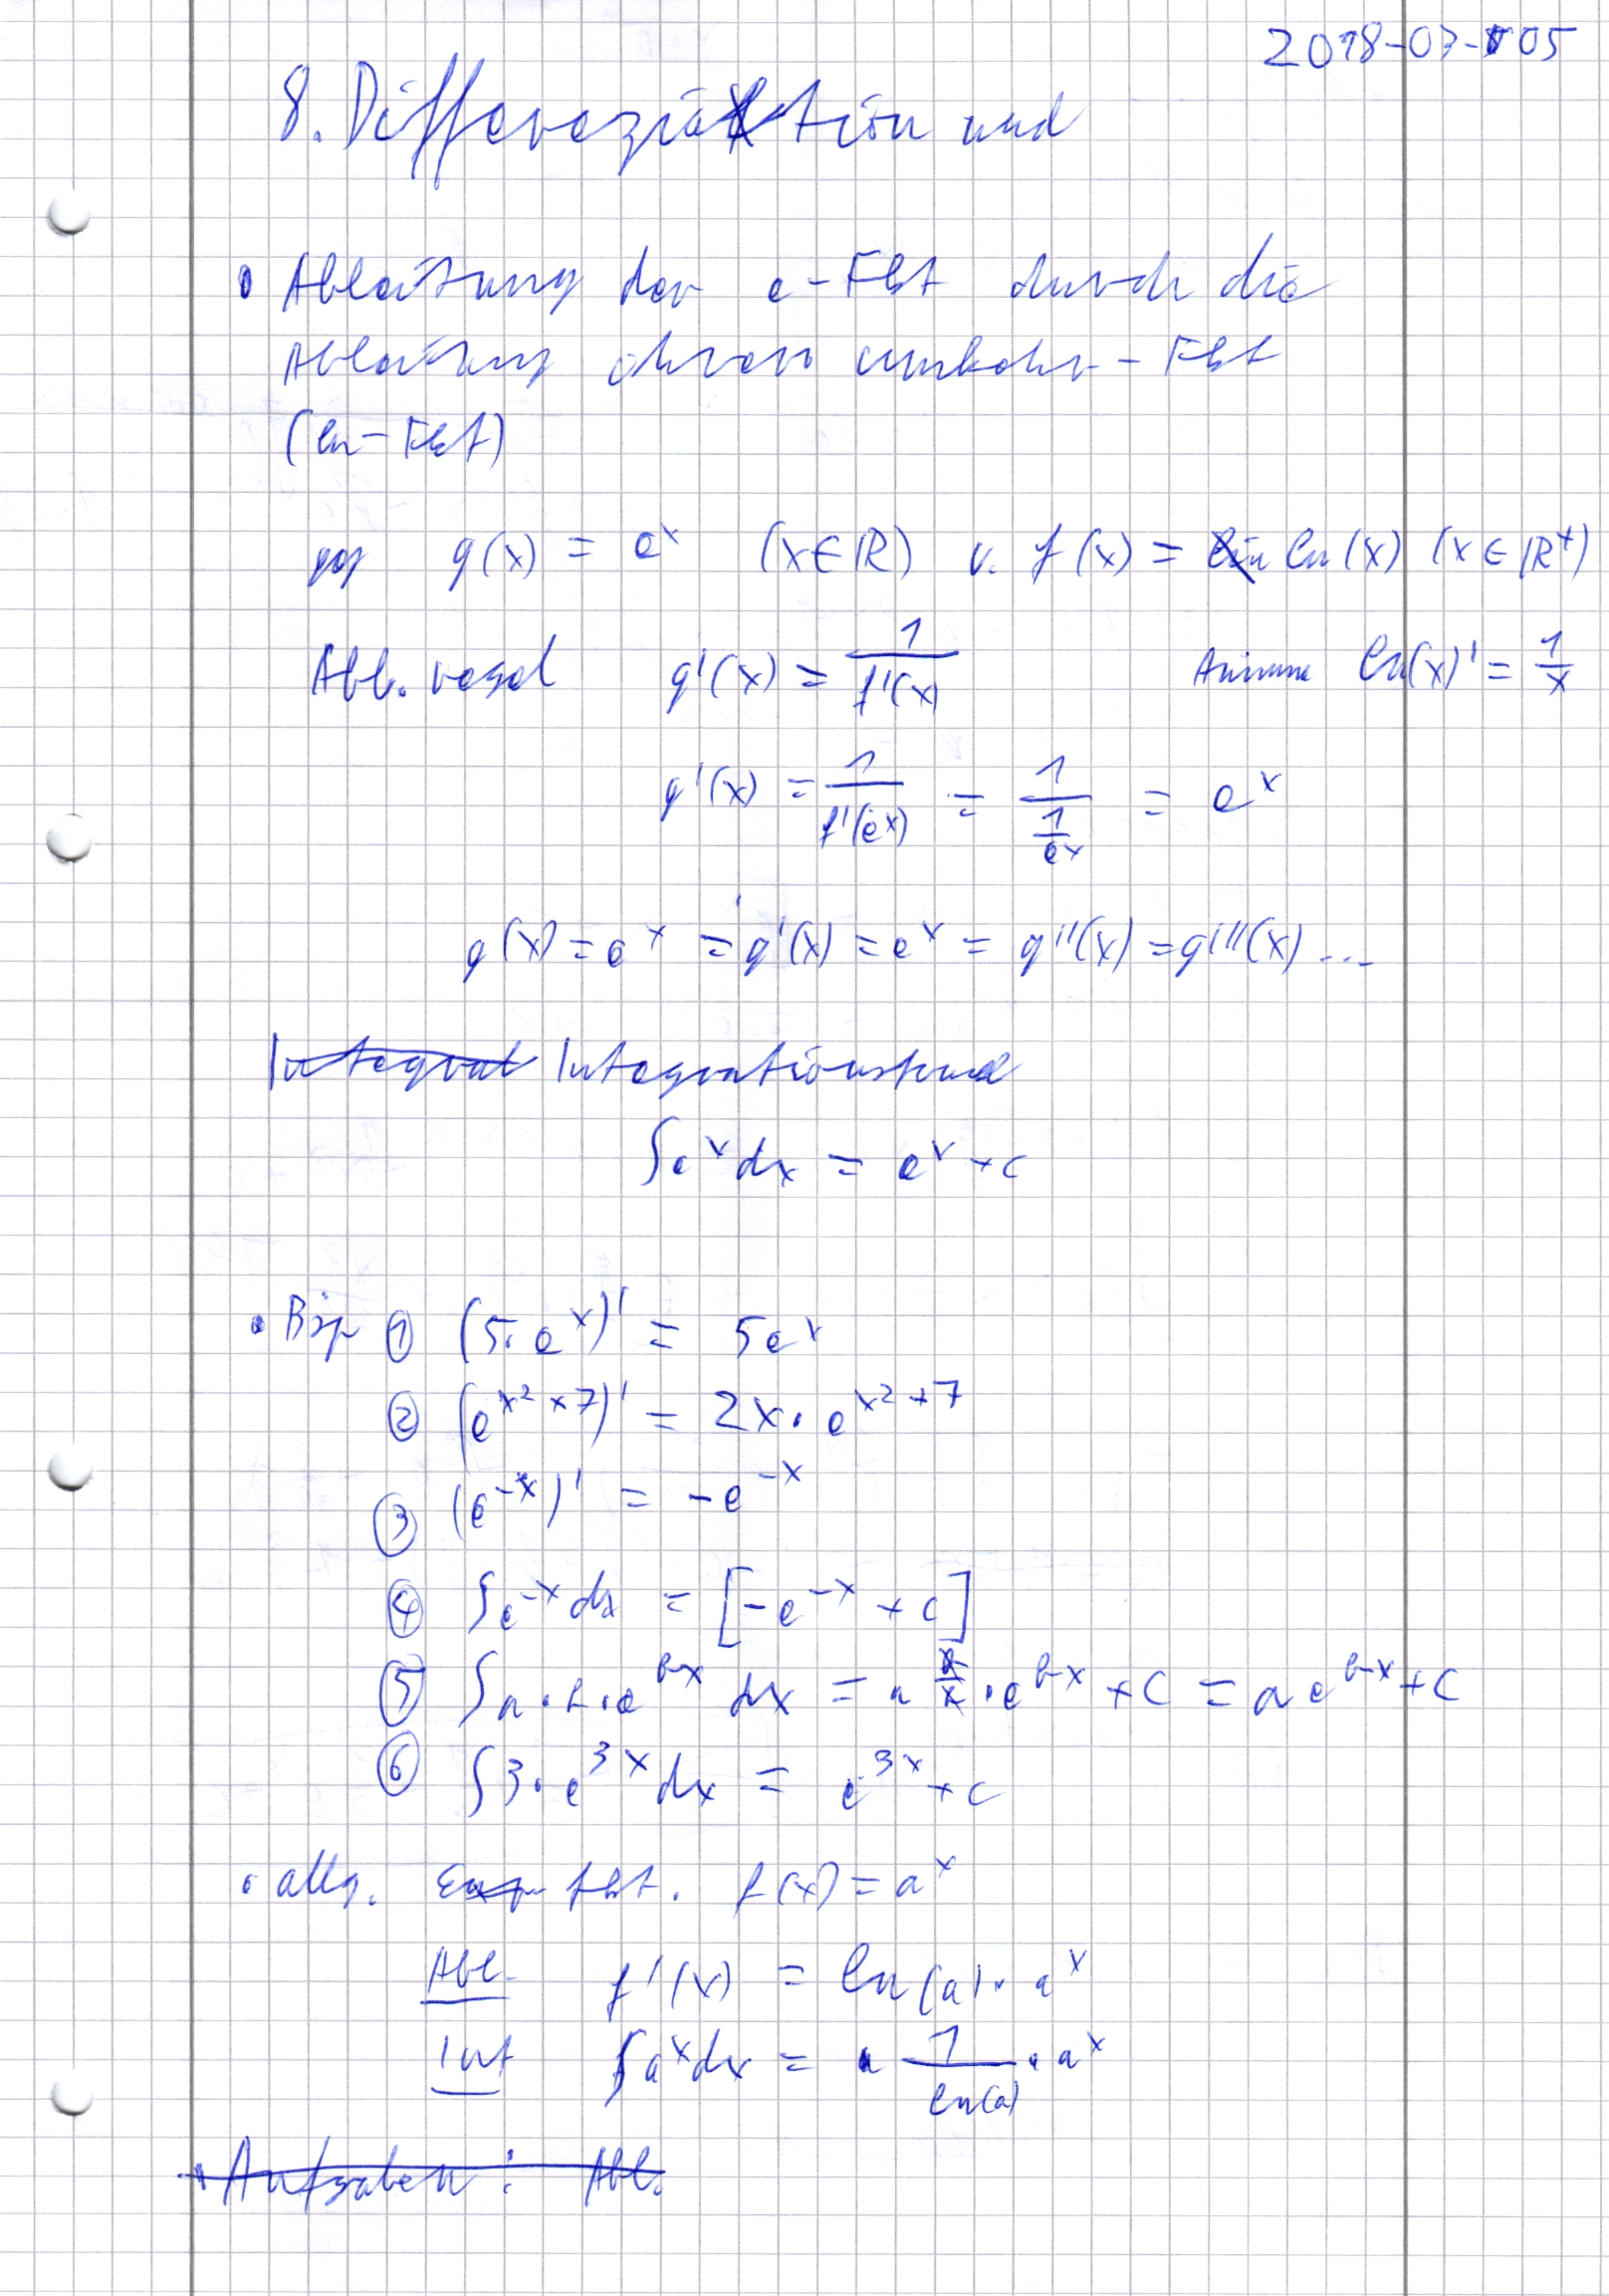 2018-03-05
8. Differeziation und
• Ableitung der e-Fkt durch die
Ableitung ihrer umkehr-Fkt
(ln-Fkt)
geg g(x) = eˣ (x∈ℝ) u. f(x) = ln(x) (x∈ℝ⁺)
Abl. regel g'(x) = 1/f'(x) ln(x)' = 1/x
g'(x) = 1/f'(eˣ) = 1/(1/eˣ) = eˣ
g(x) = eˣ = g'(x) = eˣ = g''(x) = g'''(x) ...
Integral
∫eˣdx = eˣ+c
• Bsp ① (5·eˣ)' = 5eˣ
② (e^(x²+7))' = 2x·e^(x²+7)
③ (e⁻ˣ)' = -e⁻ˣ
④ ∫e⁻ˣdx = [-e⁻ˣ+c]
⑤ ∫a·b·e^(b·x) dx = a ·e^(b·x) +C = a e^(b·x)+C
⑥ ∫3·e^(3x)dx = e^(3x)+c
• allg. Exp fkt. f(x) = aˣ
Abl. f'(x) = ln(a)·aˣ
Int ∫aˣdx = 1/ln(a)·aˣ
• Aufgaben: Abl.